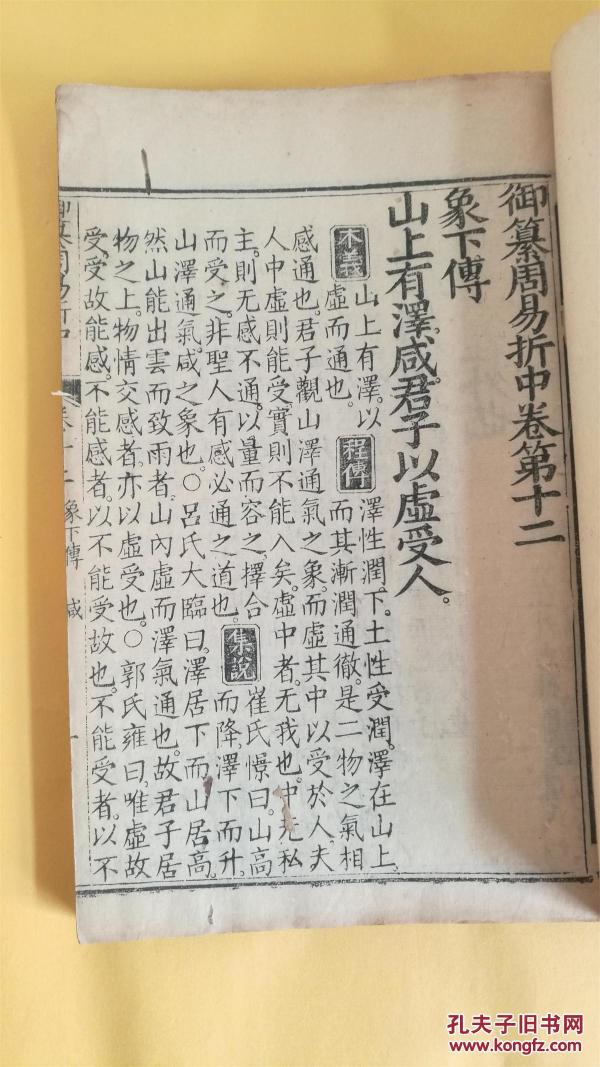 御纂周易折中卷第十二
象下傳
山上有澤。咸。君子以虛受人。
本義 山上有澤。以虛而通也。 程傳 澤性潤下。土性受潤。澤在山上。
而其漸潤通徹。是二物之氣相
感通也。君子觀山澤通氣之象。而虛其中以受於人。夫
人中虛則能受。實則不能入矣。虛中者。无我也。中无私
主。則无感不通。以量而容之。擇合
而受之。非聖人有感必通之道也。 集說 崔氏憬曰。山高
而降。澤下而升。
山澤通氣。咸之象也。○呂氏大臨曰。澤居下而山居高。
然山能出雲而致雨者。山內虛而澤氣通也。故君子居
物之上。物情交感者。亦以虛受也。○郭氏雍曰。唯虛故
受。受故能感。不能感者。以不能受故也。不能受者。以不
卷十二 象下傳 咸 一
孔夫子旧书网
kongfz.com